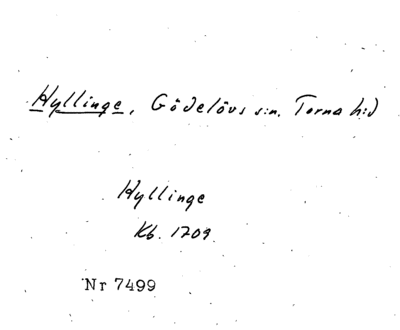 Hyllinge, Gödelövs s:n. Torna h:d
Hyllinge
Kb. 1709.
Nr 7499